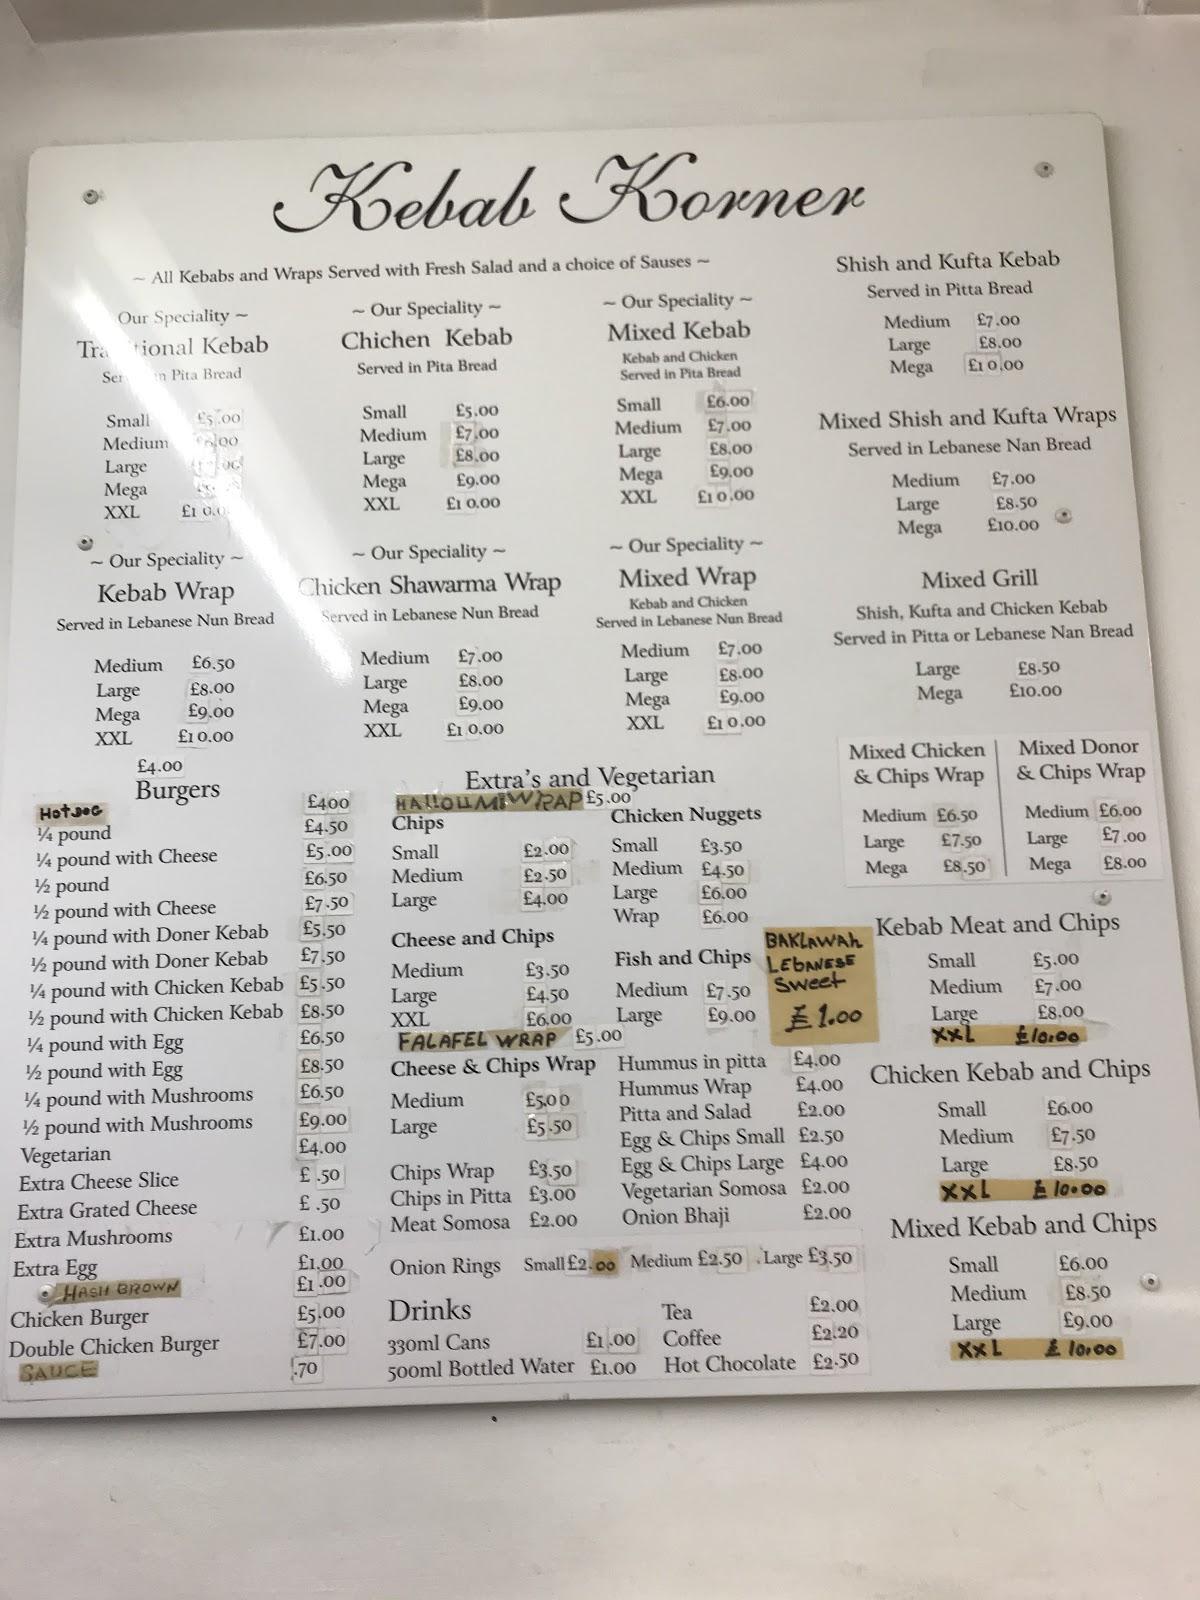 Kebab Korner
~ All Kebabs and Wraps Served with Fresh Salad and a choice of Sauses ~
Our Speciality ~
Kebab
in Pita Bread
Small £5.00
Medium
Large
Mega
XXL
~ Our Speciality ~
Chichen Kebab
Served in Pita Bread
Small £5.00
Medium £7.00
Large £8.00
Mega £9.00
XXL £10.00
~ Our Speciality ~
Mixed Kebab
Kebab and Chicken
Served in Pita Bread
Small £6.00
Medium £7.00
Large £8.00
Mega £9.00
XXL £10.00
Shish and Kufta Kebab
Served in Pitta Bread
Medium £7.00
Large £8.00
Mega £10.00
Mixed Shish and Kufta Wraps
Served in Lebanese Nan Bread
Medium £7.00
Large £8.50
Mega £10.00
~ Our Speciality ~
Kebab Wrap
Served in Lebanese Nun Bread
Medium £6.50
Large £8.00
Mega £9.00
XXL £10.00
~ Our Speciality ~
Chicken Shawarma Wrap
Served in Lebanese Nun Bread
Medium £7.00
Large £8.00
Mega £9.00
XXL £10.00
~ Our Speciality ~
Mixed Wrap
Kebab and Chicken
Served in Lebanese Nun Bread
Medium £7.00
Large £8.00
Mega £9.00
XXL £10.00
Mixed Grill
Shish, Kufta and Chicken Kebab
Served in Pitta or Lebanese Nan Bread
Large £8.50
Mega £10.00
£4.00
Burgers
HOTDOG £400
¼ pound £4.50
¼ pound with Cheese £5.00
½ pound £6.50
½ pound with Cheese £7.50
¼ pound with Doner Kebab £5.50
½ pound with Doner Kebab £7.50
¼ pound with Chicken Kebab £5.50
½ pound with Chicken Kebab £8.50
¼ pound with Egg £6.50
½ pound with Egg £8.50
¼ pound with Mushrooms £6.50
½ pound with Mushrooms £9.00
Vegetarian £4.00
Extra Cheese Slice £ .50
Extra Grated Cheese £ .50
Extra Mushrooms £1.00
Extra Egg £1.00
HASH BROWN £1.00
Chicken Burger £5.00
Double Chicken Burger £7.00
SAUCE .70
Extra's and Vegetarian
HALLOUMI WRAP £5.00
Chips
Small £2.00
Medium £2.50
Large £4.00
Cheese and Chips
Medium £3.50
Large £4.50
XXL £6.00
FALAFEL WRAP £5.00
Cheese & Chips Wrap
Medium £5.00
Large £5.50
Chips Wrap £3.50
Chips in Pitta £3.00
Meat Somosa £2.00
Chicken Nuggets
Small £3.50
Medium £4.50
Large £6.00
Wrap £6.00
Fish and Chips
Medium £7.50
Large £9.00
BAKLAWAH
LEBANESE
Sweet
£1.00
Hummus in pitta £4.00
Hummus Wrap £4.00
Pitta and Salad £2.00
Egg & Chips Small £2.50
Egg & Chips Large £4.00
Vegetarian Somosa £2.00
Onion Bhaji £2.00
Onion Rings Small £2.00 Medium £2.50 Large £3.50
Drinks
330ml Cans £1.00
500ml Bottled Water £1.00
Tea £2.00
Coffee £2.20
Hot Chocolate £2.50
Mixed Chicken
& Chips Wrap
Medium £6.50
Large £7.50
Mega £8.50
Mixed Donor
& Chips Wrap
Medium £6.00
Large £7.00
Mega £8.00
Kebab Meat and Chips
Small £5.00
Medium £7.00
Large £8.00
XXL £10.00
Chicken Kebab and Chips
Small £6.00
Medium £7.50
Large £8.50
XXL £10.00
Mixed Kebab and Chips
Small £6.00
Medium £8.50
Large £9.00
XXL £10.00